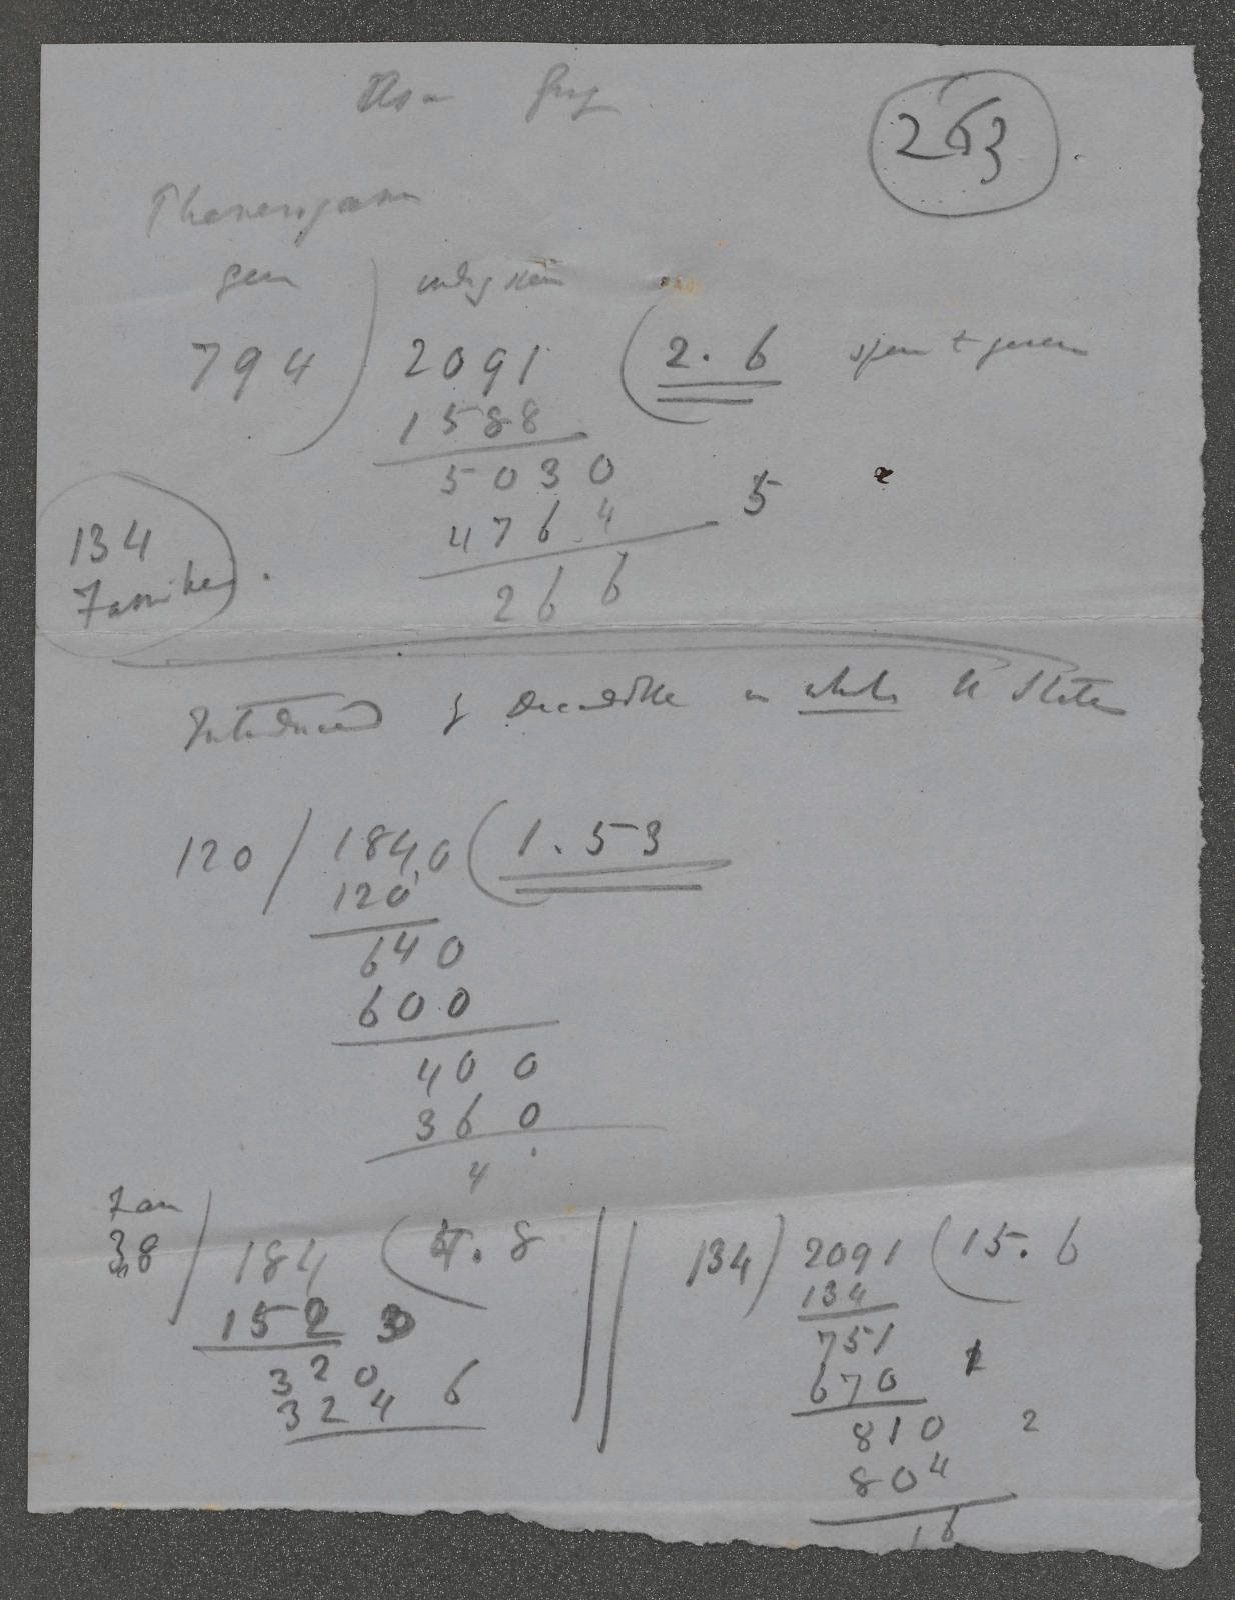 Asa Gray
263
Phanerogam
gen indig spec
794 ) 2091 ( 2.6
1588
5030
4764 5
266
134
Families
Introduced by Decandolle in which he states
120 / 184,0 ( 1.53
120
640
600
400
360
4
Fam
38 / 184 ( 4.8
152 3
320
324 6
134 ) 2091 ( 15.6
134
751
670 1
810 2
804
16